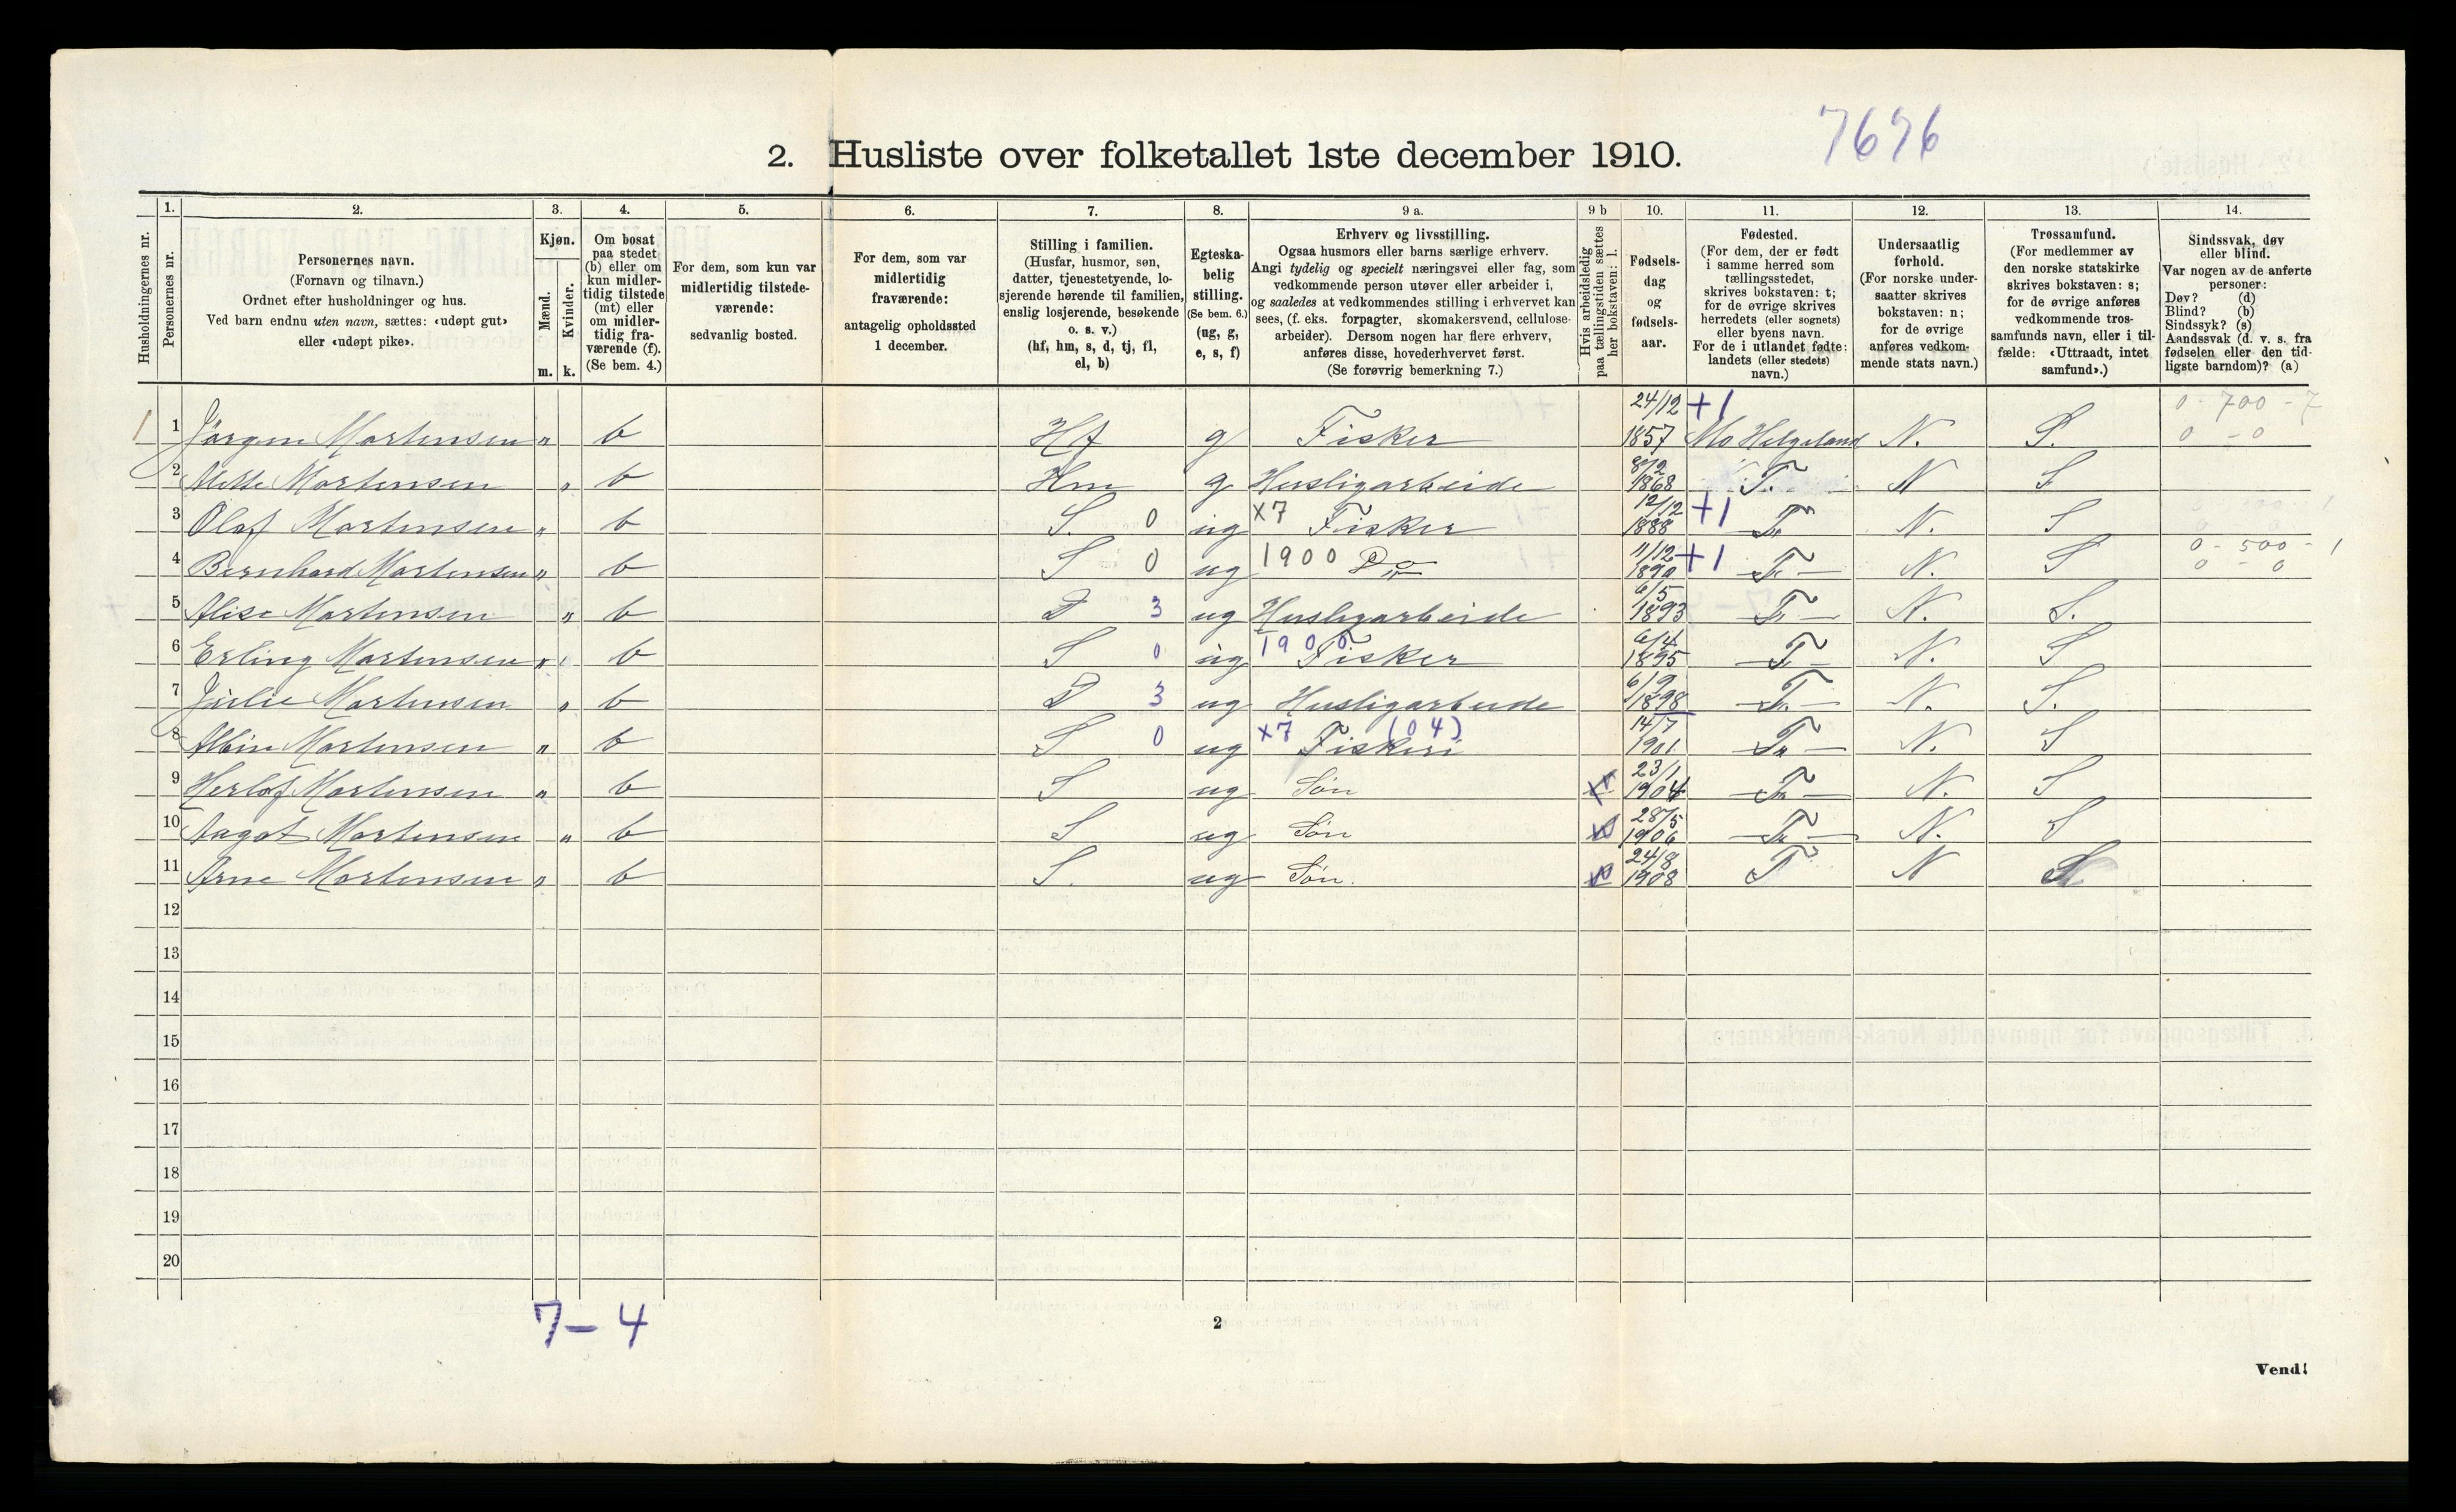 7676
2. Husliste over folketallet 1ste december 1910.
Husholdningernes nr.
1. Personernes nr.
2. Personernes navn. (Fornavn og tilnavn.) Ordnet efter husholdninger og hus. Ved barn endnu uten navn, sættes: «udøpt gut» eller «udøpt pike».
3. Kjøn. Mænd. m. Kvinder. k.
4. Om bosat paa stedet (b) eller om kun midlertidig tilstede (mt) eller om midlertidig fraværende (f). (Se bem. 4.)
5. For dem, som kun var midlertidig tilstedeværende: sedvanlig bosted.
6. For dem, som var midlertidig fraværende: antagelig opholdssted 1 december.
7. Stilling i familien. (Husfar, husmor, søn, datter, tjenestetyende, losjerende hørende til familien, enslig losjerende, besøkende o. s. v.) (hf, hm, s, d, tj, fl, el, b)
8. Egteskabelig stilling. (Se bem. 6.) (ug, g, e, s, f)
9 a. Erhverv og livsstilling. Ogsaa husmors eller barns særlige erhverv. Angi tydelig og specielt næringsvei eller fag, som vedkommende person utøver eller arbeider i, og saaledes at vedkommendes stilling i erhvervet kan sees, (f. eks. forpagter, skomakersvend, cellulosearbeider). Dersom nogen har flere erhverv, anføres disse, hovederhvervet først. (Se forøvrig bemerkning 7.)
9 b Hvis arbeidsledig paa tællingstiden sættes her bokstaven: l.
10. Fødselsdag og fødselsaar.
11. Fødested. (For dem, der er født i samme herred som tællingsstedet, skrives bokstaven: t; for de øvrige skrives herredets (eller sognets) eller byens navn. For de i utlandet fødte: landets (eller stedets) navn.)
12. Undersaatlig forhold. (For norske undersaatter skrives bokstaven: n; for de øvrige anføres vedkommende stats navn.)
13. Trossamfund. (For medlemmer av den norske statskirke skrives bokstaven: s; for de øvrige anføres vedkommende trossamfunds navn, eller i tilfælde: «Uttraadt, intet samfund».)
14. Sindssvak, døv eller blind. Var nogen av de anførte personer: Døv? (d) Blind? (b) Sindssyk? (s) Aandssvak (d. v. s. fra fødselen eller den tidligste barndom)? (a)
1 1 Jörgen Mortensen " b Hf g Fisker 24/12 1857 +1 Mo Helgeland N. S. 0 - 700 - 7 0 - 0
2 Mette Mortensen " b Hm g Husligarbeide 8/2 1868 T. N S
3 Olaf Mortensen " b S. 0 ug x7 Fisker 12/12 1888 +1 T N. S
4 Bernhard Mortensen " b S 0 ug 1900 Do 11/12 1890 +1 T N. S 0 - 500 - 1 0 - 0
5 Alise Mortensen " b D 3 ug Husligarbeide 6/5 1893 T N. S.
6 Erling Mortensen " b S 0 ug 1900 Fisker 6/4 1895 T N. S
7 Julie Mortensen " b D 3 ug Husligarbeide 6/9 1898 T N. S.
8 Albin Mortensen " b S 0 ug x7 (04) Fiskeri 14/7 1901 T N. S
9 Herlof Mortensen " b S ug Søn 23/1 1904 T N. S
10 Aagot Mortensen " b S ug Søn 28/5 1906 T N. S
11 Arne Mortensen " b S. ug Søn. 24/8 1908 T N S
12
13
14
15
16
17
18
19
20
7 - 4
2
Vend!